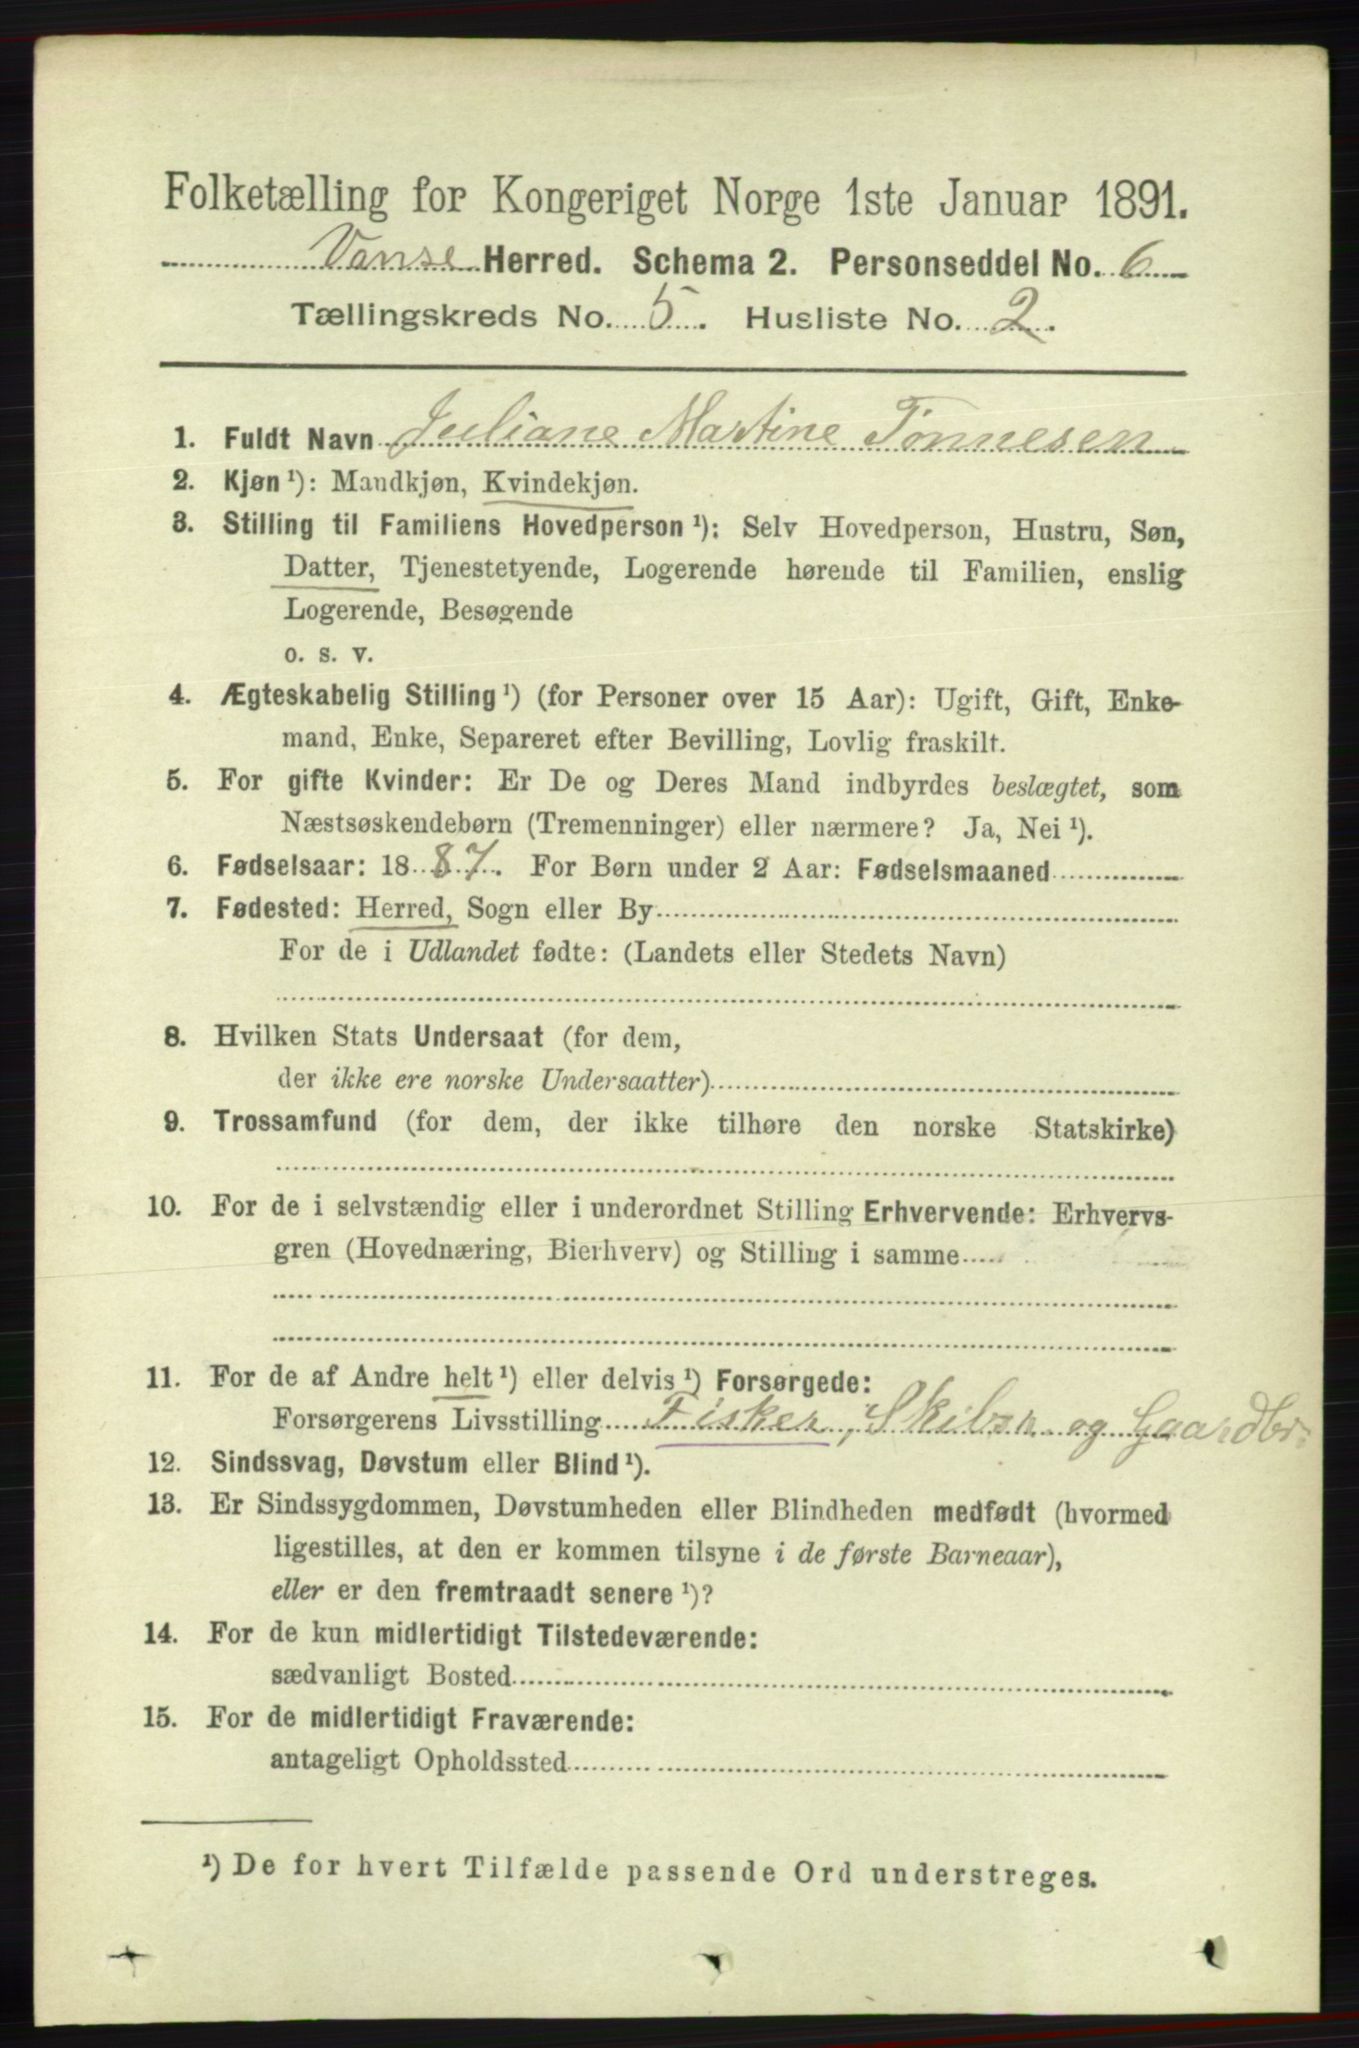 Folketælling for Kongeriget Norge 1ste Januar 1891.
Vanse Herred. Schema 2. Personseddel No. 6
Tællingskreds No. 5. Husliste No. 2.
1. Fuldt Navn Juliane Martine Tønnesen
2. Kjøn ¹): Mandkjøn, Kvindekjøn.
3. Stilling til Familiens Hovedperson ¹): Selv Hovedperson, Hustru, Søn,
Datter, Tjenestetyende, Logerende hørende til Familien, enslig
Logerende, Besøgende
o. s. v.
4. Ægteskabelig Stilling ¹) (for Personer over 15 Aar): Ugift, Gift, Enke-
mand, Enke, Separeret efter Bevilling, Lovlig fraskilt.
5. For gifte Kvinder: Er De og Deres Mand indbyrdes beslægtet, som
Næstsøskendebørn (Tremenninger) eller nærmere? Ja, Nei ¹).
6. Fødselsaar: 1887. For Børn under 2 Aar: Fødselsmaaned
7. Fødested: Herred, Sogn eller By
For de i Udlandet fødte: (Landets eller Stedets Navn)
8. Hvilken Stats Undersaat (for dem,
der ikke ere norske Undersaatter)
9. Trossamfund (for dem, der ikke tilhøre den norske Statskirke)
10. For de i selvstændig eller i underordnet Stilling Erhvervende: Erhvervs-
gren (Hovednæring, Bierhverv) og Stilling i samme
11. For de af Andre helt ¹) eller delvis ¹) Forsørgede:
Forsørgerens Livsstilling Fisker, Skibsr. og Gaardbr.
12. Sindssvag, Døvstum eller Blind ¹).
13. Er Sindssygdommen, Døvstumheden eller Blindheden medfødt (hvormed
ligestilles, at den er kommen tilsyne i de første Barneaar),
eller er den fremtraadt senere ¹)?
14. For de kun midlertidigt Tilstedeværende:
sædvanligt Bosted
15. For de midlertidigt Fraværende:
antageligt Opholdssted
¹) De for hvert Tilfælde passende Ord understreges.